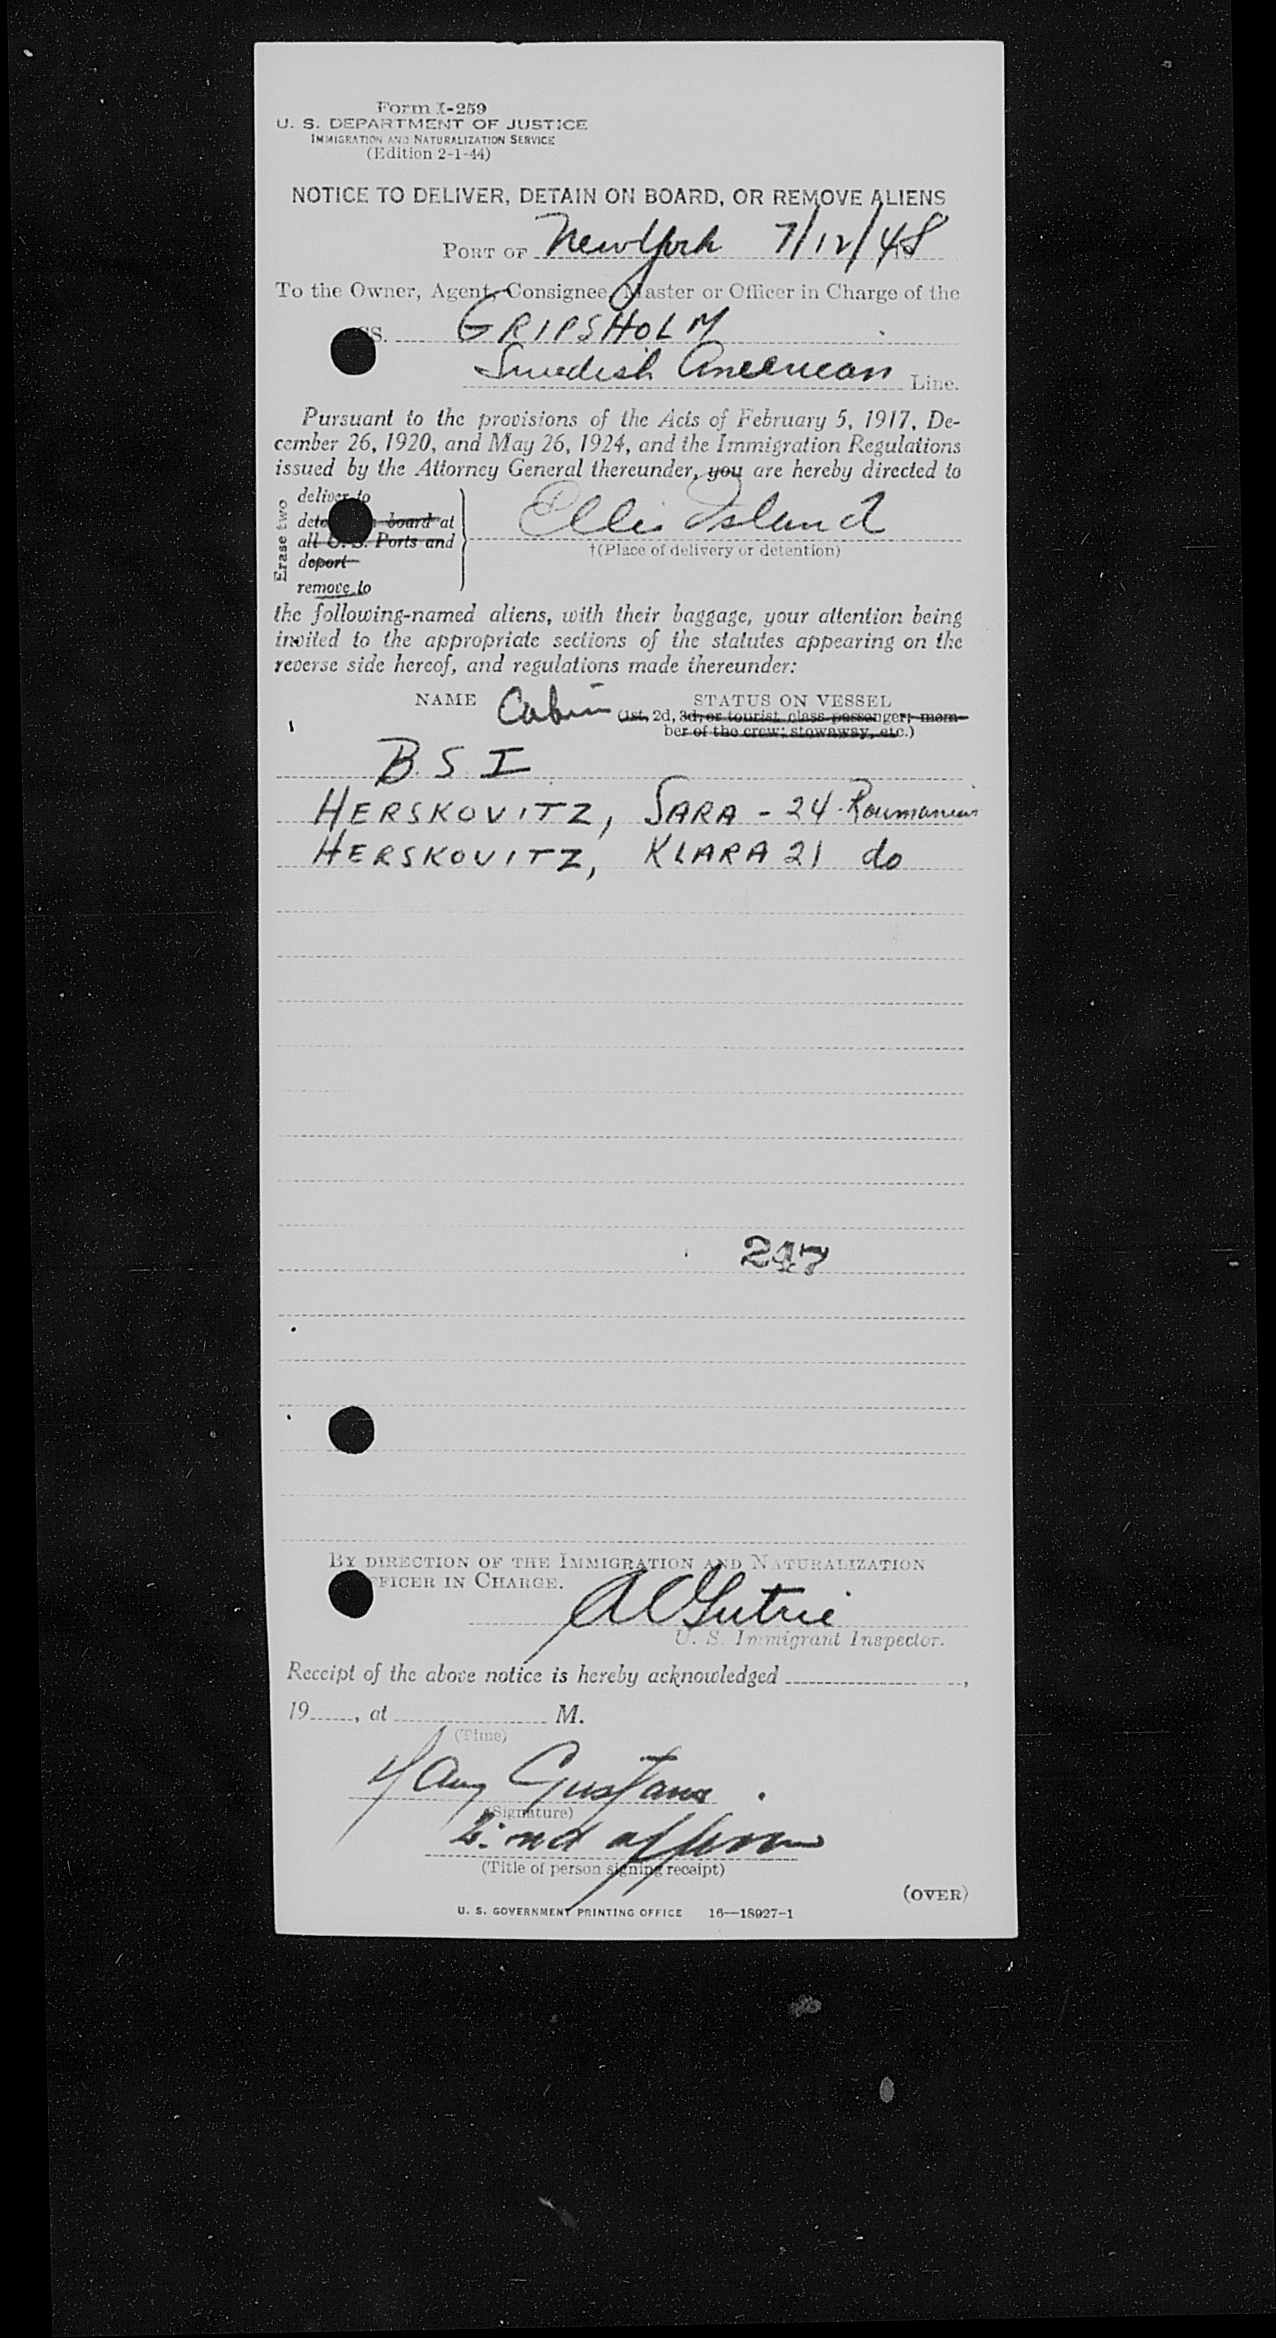 Form I-259
U. S. DEPARTMENT OF JUSTICE
IMMIGRATION AND NATURALIZATION SERVICE
(Edition 2-1-44)
NOTICE TO DELIVER, DETAIN ON BOARD, OR REMOVE ALIENS
PORT OF New York 7/12/48
To the Owner, Agent, Consignee, Master or Officer in Charge of the
SS. GRIPSHOLM
Swedish American Line.
Pursuant to the provisions of the Acts of February 5, 1917, De-
cember 26, 1920, and May 26, 1924, and the Immigration Regulations
issued by the Attorney General thereunder, you are hereby directed to
Erase two
deliver to
board at
all U. S. Ports and
deport
remove to
Ellis Island
†(Place of delivery or detention)
the following-named aliens, with their baggage, your attention being
invited to the appropriate sections of the statutes appearing on the
reverse side hereof, and regulations made thereunder:
NAME Cabin STATUS ON VESSEL
(1st, 2d, 3d, or tourist class passenger; mem-
ber of the crew; stowaway, etc.)
B. S. I
HERSKOVITZ, SARA - 24 Roumanian
HERSKOVITZ, KLARA 21 do
247
BY DIRECTION OF THE IMMIGRATION AND NATURALIZATION
OFFICER IN CHARGE.
U. S. Immigrant Inspector.
Receipt of the above notice is hereby acknowledged ,
19 , at M.
(Time)
(Signature)
(Title of person signing receipt)
(OVER)
U. S. GOVERNMENT PRINTING OFFICE 16—18927-1